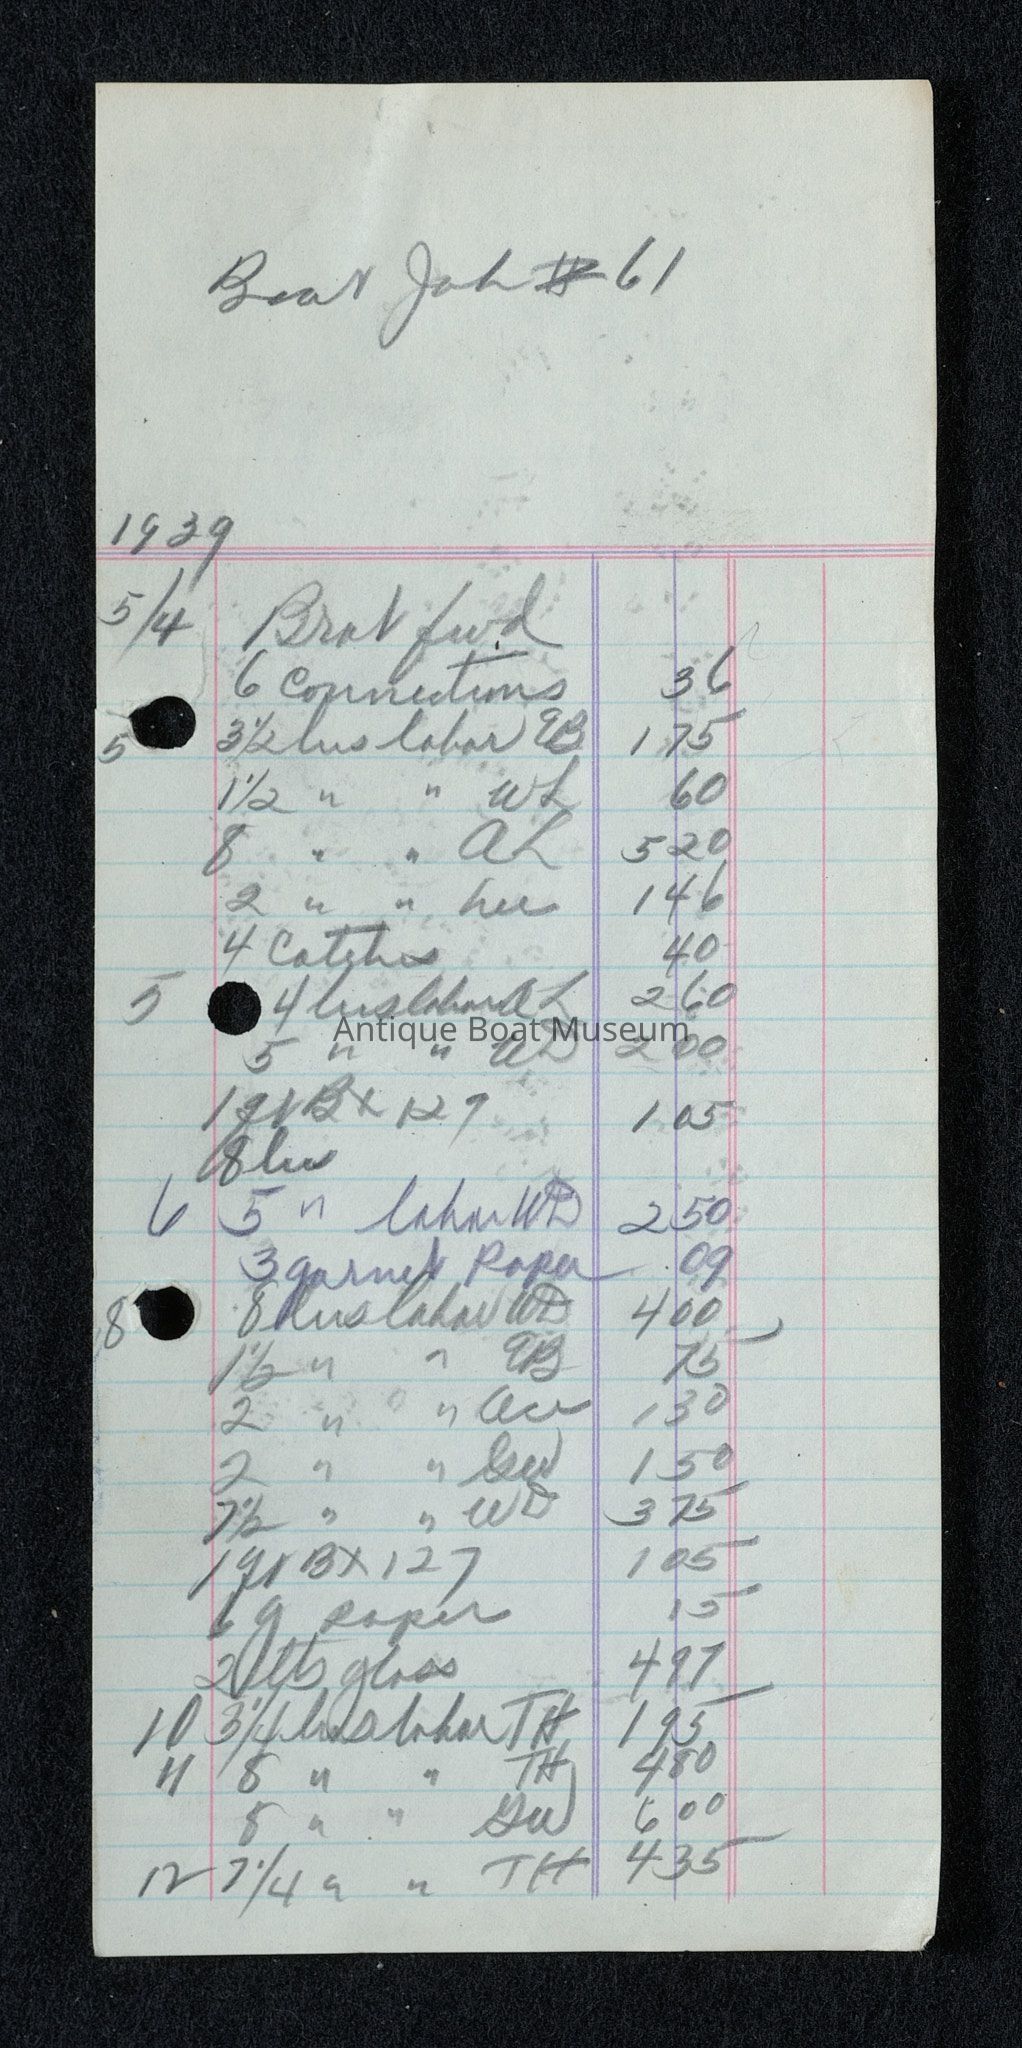 Boat Job # 61
1939
5/4 Brot fwd
6 Connections 36
5 3 1/2 hrs labor EB 1 75
1 1/2 " " WL 60
8 " " AL 5 20
2 " " Lee 1 46
4 Catches 40
5 4 hrs labor AL 2 60
Antique Boat Museum
5 " " WD 2 00
1 qt BX 127 1 05
8 hrs
6 5 " labor WD 2 50
3 garnet paper 09
8 8 hrs labor WD 4 00
1 1/2 " " EB 75
2 " " 1 30
2 " " GW 1 50
7 1/2 " " WD 3 75
1 qt BX 127 1 05
6 g paper 15
2 lts glass 4 97
10 3 1/4 hrs labor TH 1 95
11 8 " " TH 4 80
8 " " GW 6 00
12 7 1/4 " " TH 4 35